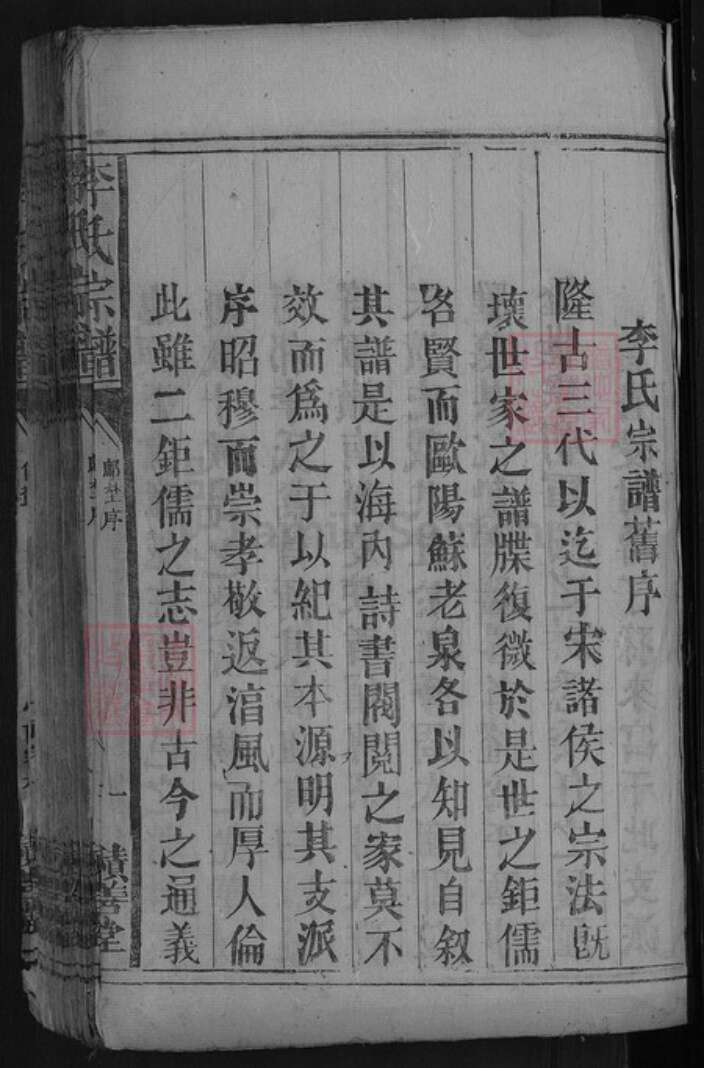 李氏宗譜舊序
隆古三代以迄于宋諸侯之宗法旣
壞世家之譜牒復微於是世之鉅儒
名賢而歐陽蘇老泉各以知見自叙
其譜是以海內詩書閥閱之家莫不
效而爲之于以紀其本源明其支派
序昭穆而崇孝敬返湻風而厚人倫
此雖二鉅儒之志豈非古今之通義
李氏宗譜
序
一
積善堂